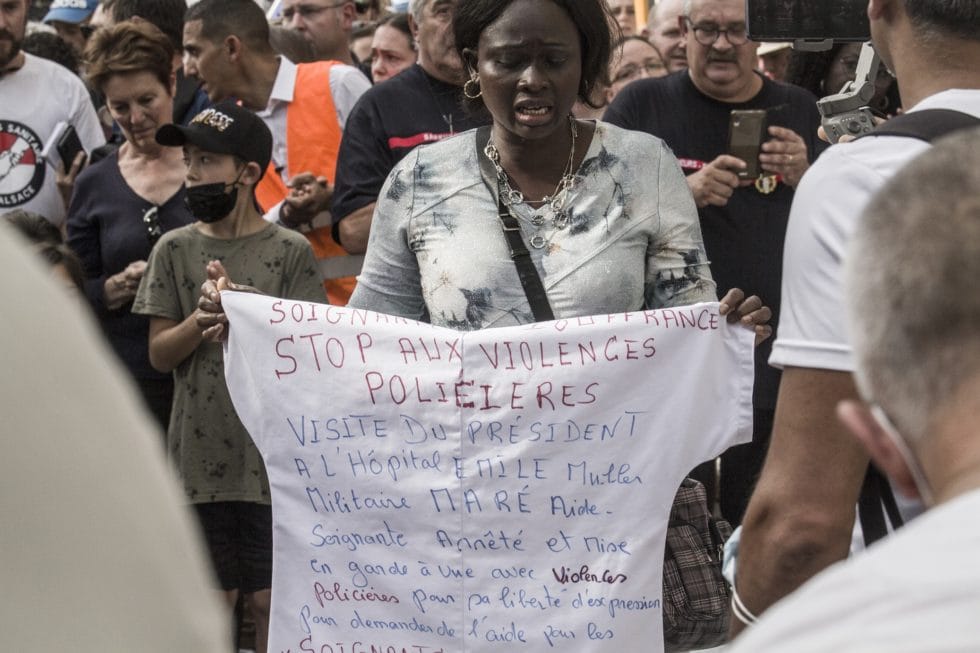 SANIT
ALSACE
SOIGNANT
FRANCE
STOP AUX VIOLENCES
POLICIERES
VISITE DU PRÉSIDENT
A L'HÔPITAL EMILE Muller
Militaire MARÉ Aide-
Soignante Arrêté et Mise
en garde à vue avec Violences
Policières pour sa liberté d'expression
pour demander de l'aide pour les
SOIGNANTS